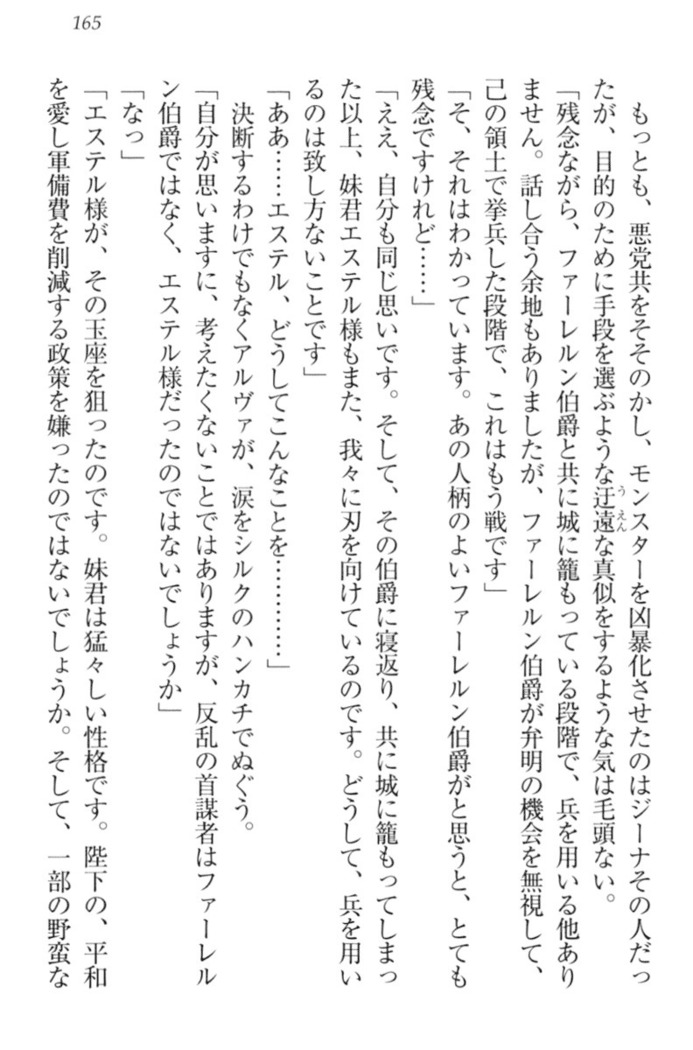 165
もっとも、悪党共をそそのかし、モンスターを凶暴化させたのはジーナその人だっ
たが、目的のために手段を選ぶような迂遠な真似をするような気は毛頭ない。
「残念ながら、ファーレルン伯爵と共に城に籠もっている段階で、兵を用いる他あり
ません。話し合う余地もありましたが、ファーレルン伯爵が弁明の機会を無視して、
己の領土で挙兵した段階で、これはもう戦です」
「そ、それはわかっています。あの人柄のよいファーレルン伯爵がと思うと、とても
残念ですけれど……」
「ええ、自分も同じ思いです。そして、その伯爵に寝返り、共に城に籠もってしまっ
た以上、妹君エステル様もまた、我々に刃を向けているのです。どうして、兵を用い
るのは致し方ないことです」
「ああ……エステル、どうしてこんなことを…………」
決断するわけでもなくアルヴァが、涙をシルクのハンカチでぬぐう。
「自分が思いますに、考えたくないことではありますが、反乱の首謀者はファーレル
ン伯爵ではなく、エステル様だったのではないでしょうか」
「なっ」
「エステル様が、その玉座を狙ったのです。妹君は猛々しい性格です。陛下の、平和
を愛し軍備費を削減する政策を嫌ったのではないでしょうか。そして、一部の野蛮な